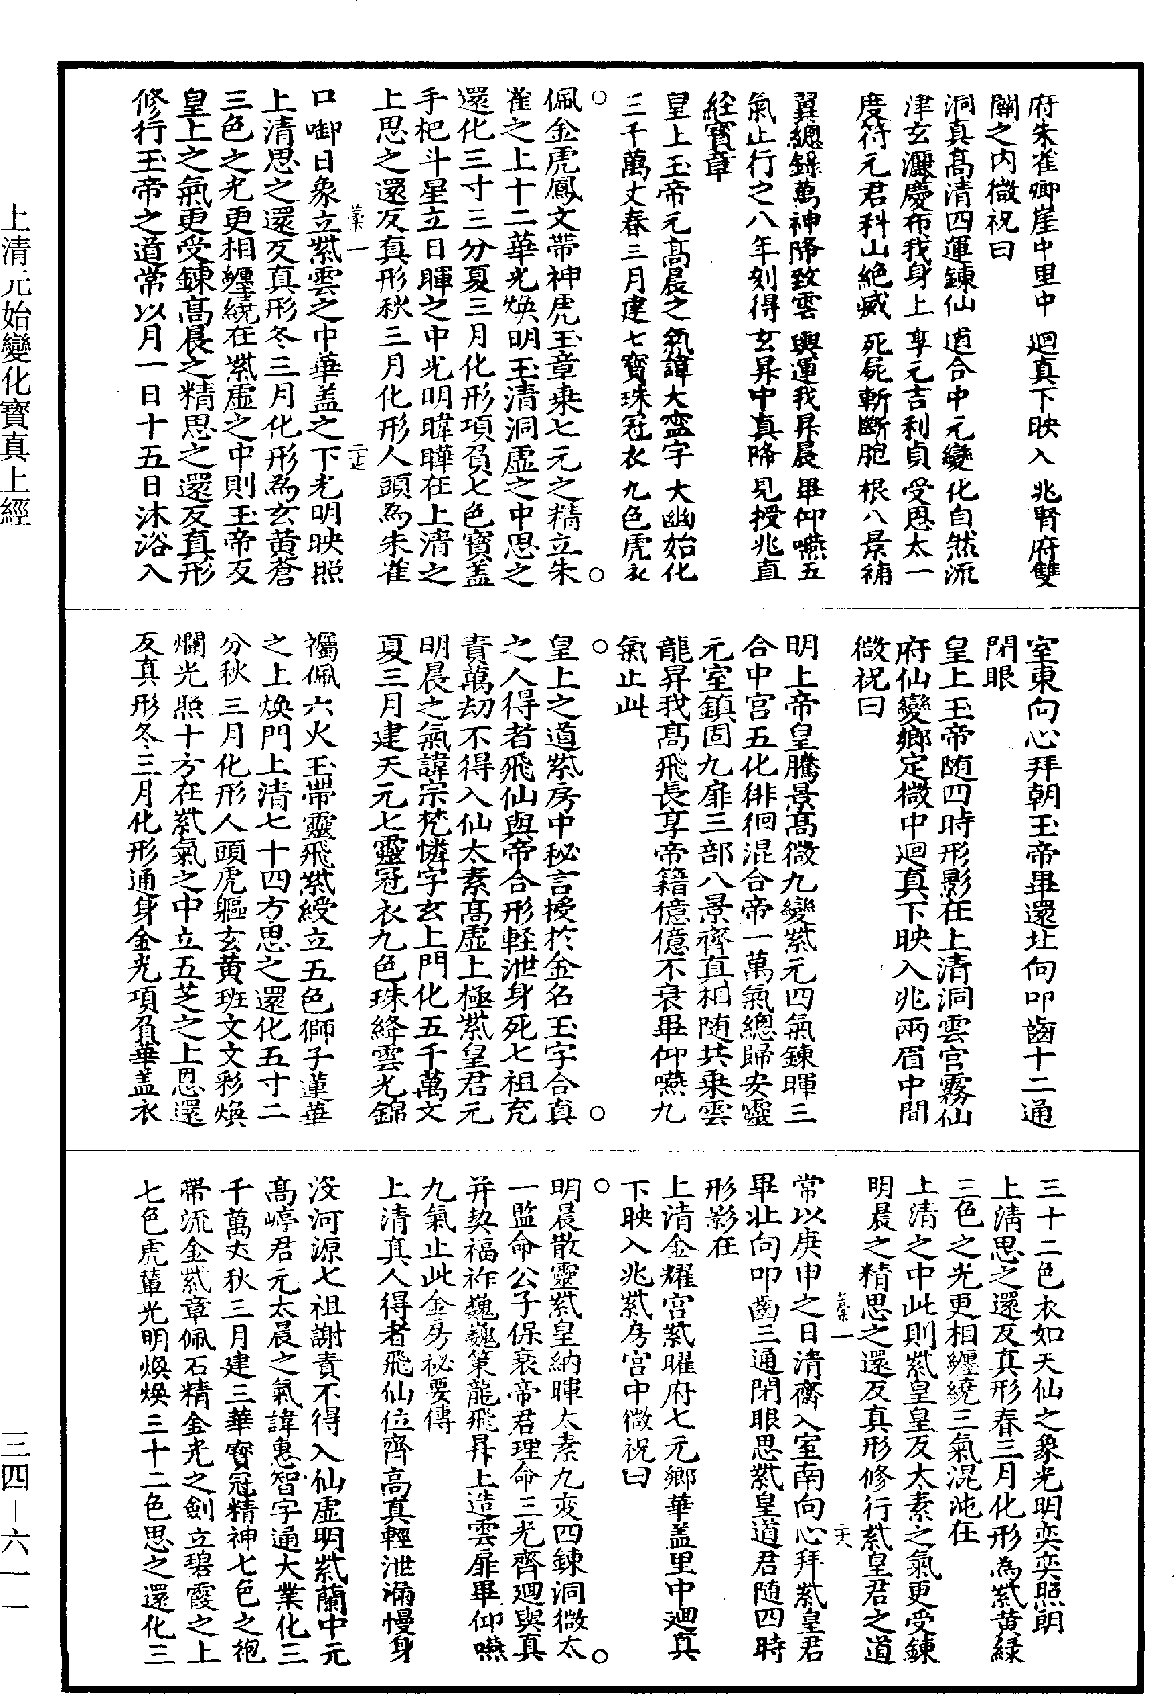 府朱雀卿崖中里中迴真下映入兆腎府雙
闕之內微祝曰
洞真高清四運鍊仙遁合中元變化自然流
津玄灑慶布我身上享元吉利貞受恩太一
度符元君科山絶滅死屍斬斷胞根八景補
翼總錄萬神降致雲輿運我昇晨畢仰嚥五
氣止行之八年刻得玄昇中真降見授兆直
經寶章
皇上玉帝元高晨之氣諱大蠻字大幽始化
三千萬丈春三月建七寶珠冠衣九色虎衣
佩金虎鳳文帶神虎玉章乘七元之精立朱
雀之上十二華光煥明玉清洞虛之中思之
還化三寸三分夏三月化形項負七色寶蓋
手把斗星立日暉之中光明暐曄在上清之
上思之還反真形秋三月化形人頭為朱雀
口啣日象立紫雲之中華蓋之下光明映照
上清思之還反真形冬三月化形為玄黄蒼
三色之光更相纏繞在紫虛之中則玉帝反
皇上之氣更受鍊高晨之精思之還反真形
修行玉帝之道常以月一日十五日沐浴入
室東向心拜朝玉帝畢還北向叩齒十二通
閉眼
皇上玉帝随四時形影在上清洞雲宫霧仙
府仙變鄉定微中迴真下映入兆兩眉中間
微祝曰
明上帝皇騰景高微九變紫元四氣鍊暉三
合中宫五化徘徊混合帝一萬氣總歸安靈
元室鎮固九扉三部八景齊真相随共乘雲
龍昇我高飛長享帝籍億億不衰畢仰嚥九
氣止此
皇上之道紫房中秘言授於金名玉字合真
之人得者飛仙與帝合形輕泄身死七祖充
責萬劫不得入仙太素高虛上極紫皇君元
明晨之氣諱宗梵憐字玄上門化五千萬丈
夏三月建天元七靈冠衣九色珠絳雲光錦
襡佩六火玉帶靈飛紫綬立五色獅子蓮華
之上煥門上清七十四方思之還化五寸二
分秋三月化形人頭虎軀玄黄班文文彩煥
爛光照十方在紫氣之中立五芝之上思還
反真形冬三月化形通身金光項負華蓋衣
三十二色衣如天仙之象光明奕奕照朗
上清思之還反真形春三月化形為紫黄緑
三色之光更相纏繞三氣混沌在
上清之中此則紫皇皇反太素之氣更受鍊
明晨之精思之還反真形修行紫皇君之道
常以庚申之日清齋入室南向心拜紫皇君
畢北向叩齒三通閉眼思紫皇道君随四時
形影在
上清金耀宫紫曜府七元鄉華蓋里中迴真
下映入兆紫房宫中微祝曰
明晨散靈紫皇納暉太素九变四鍊洞微太
一監命公子保衰帝君理命三光齊迴與真
并契福祚巍巍策龍飛昇上造雲扉畢仰嚥
九氣止此金房祕要傳
上清真人得者飛仙位齊高真輕泄漏慢身
沒河源七祖謝責不得入仙虛明紫蘭中元
高崢君元太晨之氣諱惠智字通大業化三
千萬丈秋三月建三華寶冠精神七色之袍
帶流金紫章佩石精金光之劍立碧霞之上
七色虎輦光明煥煥三十二色思之還化三
上清元始變化寶真上經
三四－六一一